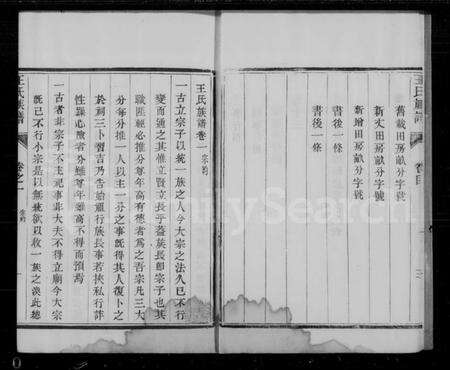 王氏族譜
卷首
舊載田房畝分字號
新丈田房畝分字號
新增田房畝分字號
書後一條
書後一條
王氏族譜卷一 宗約
一古立宗子以統一族之人今大宗之法久已不行
變而通之其惟立賢立長乎蓋族長即宗子也其
職匪輕必推分尊年高有德者爲之吾宗凡三大
分每分推一人以主一分之事既得其人復卜之
於祠三卜習吉乃告於祖行族長事若挾私行詐
性躁心險者分雖尊年雖高不得而預焉
一古者非宗子不主祀事非大夫不得立廟今大宗
既已不行小宗是以無統欲以收一族之渙此總
王氏族譜
卷之一
宗約
FamilySearch